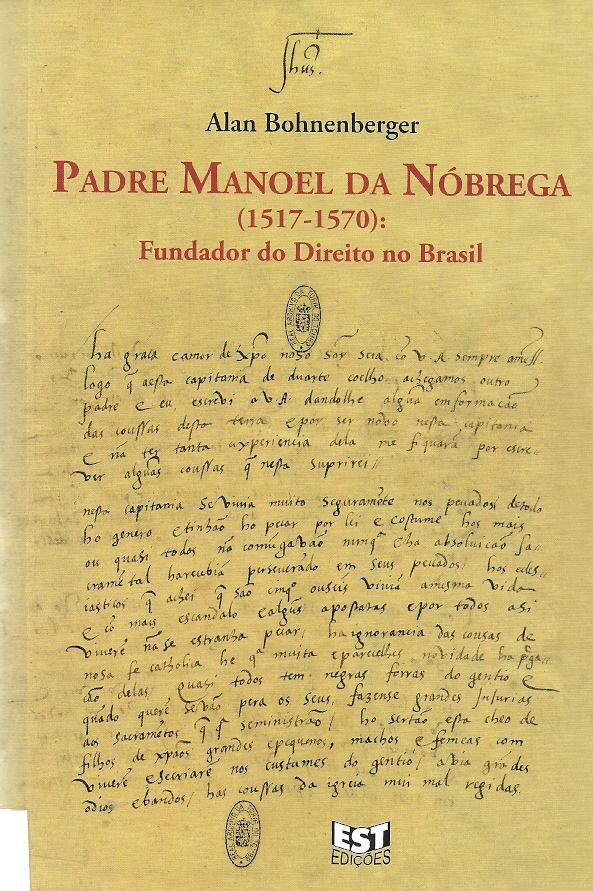 Jhus.
Alan Bohnenberger
PADRE MANOEL DA NÓBREGA
(1517-1570):
Fundador do Direito no Brasil
REAL ARCHIVO DA TORRE DO TOMBO
ha graça e amor de xpo noso sõr seia cõ v A sempre amē//
logo q̃ a esta capitania de duarte coelho achegamos outro
padre e eu, escrevi a v A. dandolhe algũa emformação
das coussas desta terra e por ser novo nesta capitania
e nã ter tanta experiencia dela me fiquarã por escre-
ver algũas coussas q̃ nesta suprirei//
nesta capitania se vivia muito seguramẽte nos pecados de todo
ho genero e tinhão ho pecar por lei e costume hos mais
ou quasi todos nã comũgavão nunq̃ e ha absolvicão sa-
cramẽtal harecebiã perseverado em seus pecados/ hos ecles-
iasticos q̃ achei q̃ são cinq̃o ou seis viviã a mesma vida
e cõ mais escandalo e algũs apostatas e por todos asi
viverẽ nã se estranha pecar/ ha ignorancia das cousas de
nosa fe catholica he q̃ muita e novidade ha
ção delas, quasi todos tem negras forras do gentio e
quãdo querẽ se vão pera os seus, fazense grandes Injurias
aos sacramẽtos q̃ q̃ se ministrão/ ho sertão esta cheo de
filhos de xpãos grandes e pequenos, machos e femeas com
viverẽ e se criarẽ nos custumes do gentio/ avia grãdes
odios e bandos/ has coussas da igreia mui mal regidas.
REAL ARCHIVO DA TORRE DO TOMBO
EST
EDIÇÕES